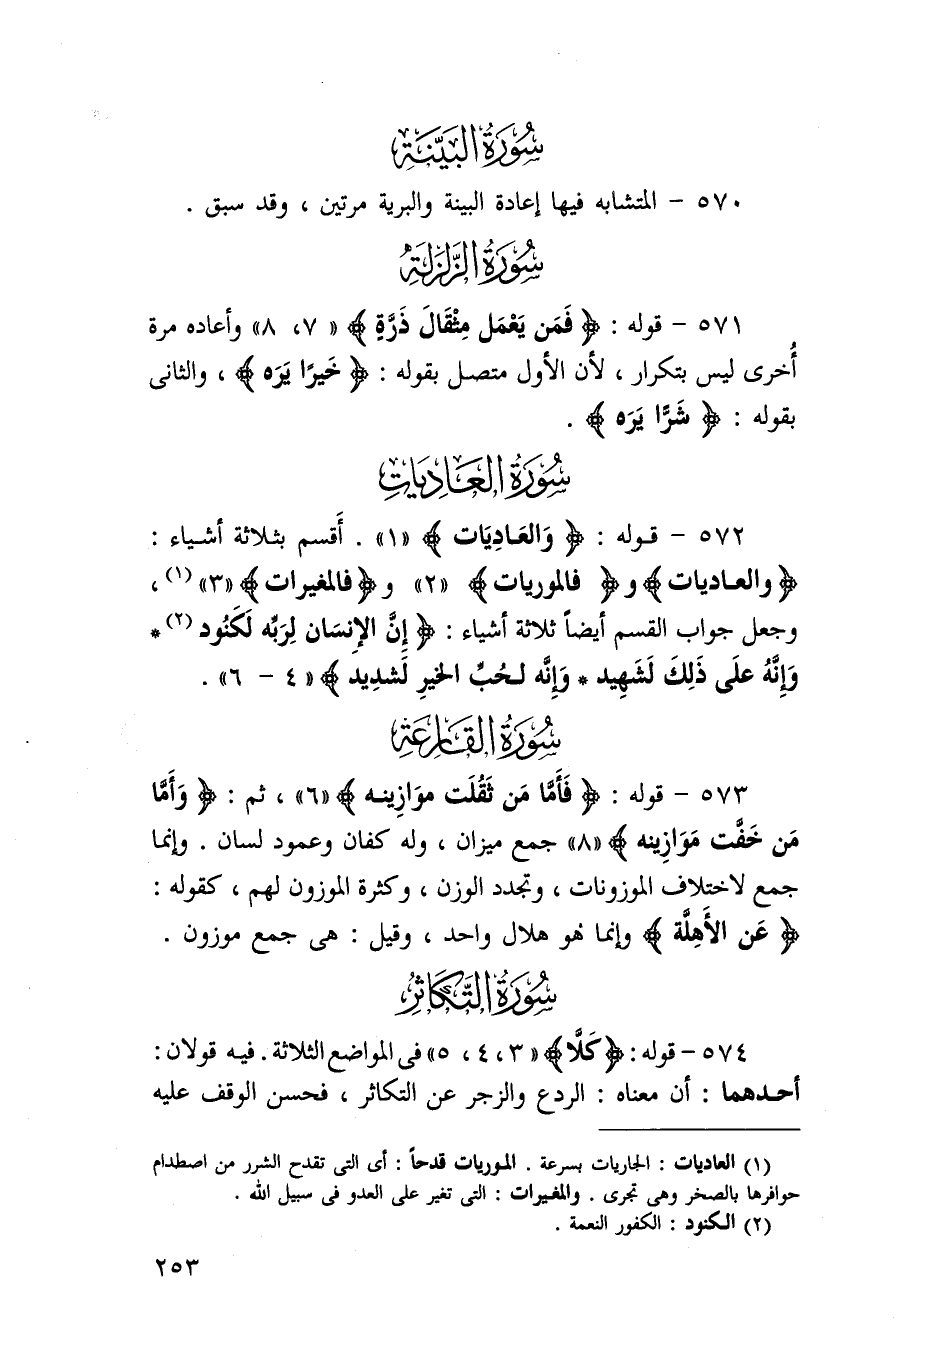 سُورَةُ البَيِّنَةِ
٥٧٠ – المتشابه فيها إعادة البينة والبرية مرتين ، وقد سبق .
سُورَةُ الزَّلزَلَةِ
٥٧١ – قوله : ﴿ فَمَن يَعْمَل مِثْقَالَ ذَرَّةٍ ﴾ « ٧، ٨» وأعاده مرة
أُخرى ليس بتكرار ، لأن الأول متصل بقوله : ﴿ خَيرًا يَرَه ﴾ ، والثانى
بقوله : ﴿ شَرًّا يَرَه ﴾ .
سُورَةُ العَادِيَاتِ
٥٧٢ – قوله : ﴿ وَالعَادِيَات ﴾ «١» . أَقسم بثلاثة أشياء :
﴿ والعاديات ﴾ و ﴿ فالموريات ﴾ «٢» و ﴿ فالمغيرات ﴾ «٣» (١) ،
وجعل جواب القسم أيضاً ثلاثة أشياء : ﴿ إِنَّ الإِنسَان لِرَبِّه لَكَنُود (٢) *
وَإِنَّهُ علَى ذَلِكَ لَشَهِيد * وَإِنَّه لحُبِّ الخيرِ لَشدِيد ﴾ « ٤ – ٦» .
سُورَةُ القَارِعَةِ
٥٧٣ – قوله : ﴿ فَأَمَّا مَن ثَقُلَت موَازِينه ﴾ «٦» ، ثم : ﴿ وَأَمَّا
مَن خَفَّت مَوَازِينه ﴾ «٨» جمع ميزان ، وله كفان وعمود لسان . وإنما
جمع لاختلاف الموزونات ، وتجدد الوزن ، وكثرة الموزون لهم ، كقوله :
﴿ عَن الأَهِلَّة ﴾ وإنما هُو هلال واحد ، وقيل : هى جمع موزون .
سُورَةُ التَّكَاثُرِ
٥٧٤ – قوله : ﴿ كَلَّا ﴾ « ٣، ٤، ٥» فى المواضع الثلاثة . فيه قولان :
أحدهما : أن معناه : الردع والزجر عن التكاثر ، فحسن الوقف عليه
(١) العاديات : الجاريات بسرعة . الموريات قدحاً : أى التى تقدح الشرر من اصطدام
حوافرها بالصخر وهى تجرى . والمغيرات : التى تغير على العدو فى سبيل الله .
(٢) الكنود : الكفور النعمة .
٢٥٣